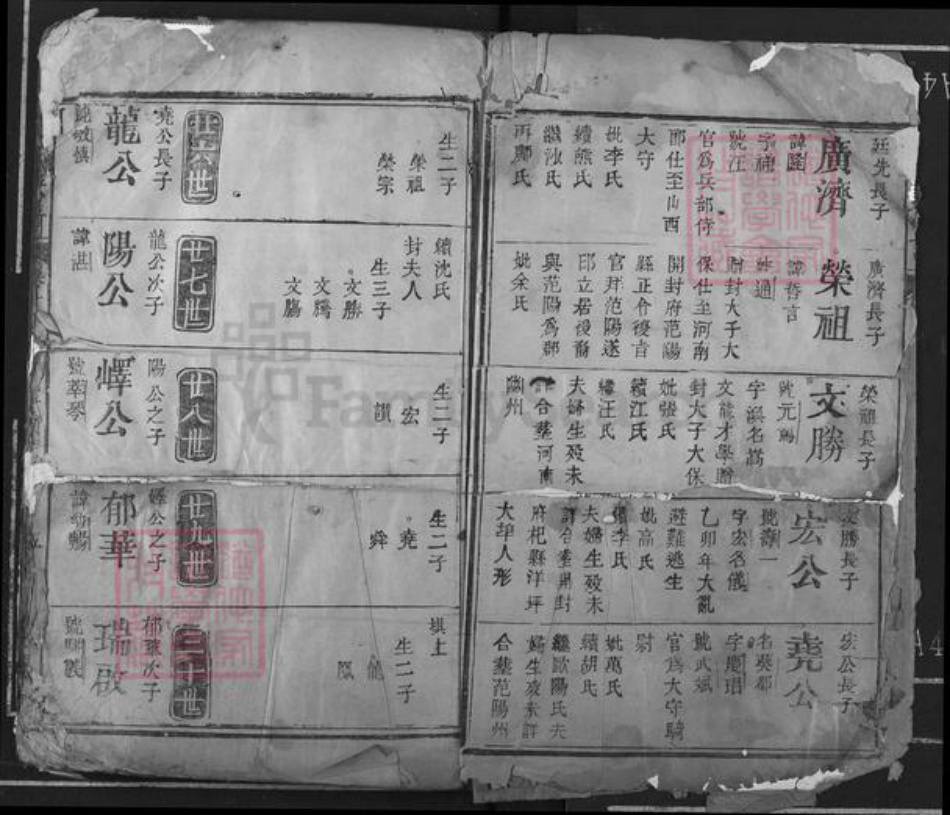 廷先長子
廣濟
諱隆
官爲兵部侍
郎仕至山西
大守
妣李氏
續熊氏
繼沈氏
再鄺氏
廣濟長子
榮祖
諱哲言
贈封大子大
保仕至河南
開封府范陽
縣正令後官
官拜范陽遂
邱立居後裔
與范陽爲郡
妣余氏
榮祖長子
文勝
字渼名嵩
文龍才學贈
封大子大保
妣張氏
續江氏
繼汪氏
夫婦生殁未
詳合塟河南
幽州
文勝長子
宏公
字宏名儀
乙卯年大亂
避難逃生
妣高氏
續李氏
夫婦生殁未
詳合塟開封
府杞縣洋坪
大埠人形
宏公長子
堯公
名葵郁
號武斌
官爲大守騎
尉
妣萬氏
續胡氏
繼歐陽氏夫
婦生殁未詳
合塟范陽州
生二子
榮祖
榮宗
廿六世
堯公長子
龍公
續沈氏
封夫人
生三子
文勝
文騰
文騰
廿七世
龍公次子
陽公
諱湛
生二子
宏
讃
廿八世
陽公之子
嶧公
號萃琴
生二子
堯
舜
廿九世
嶧公之子
郁華
坝上
生二子
龍
鳳
三十世
郁華次子
瑞啟